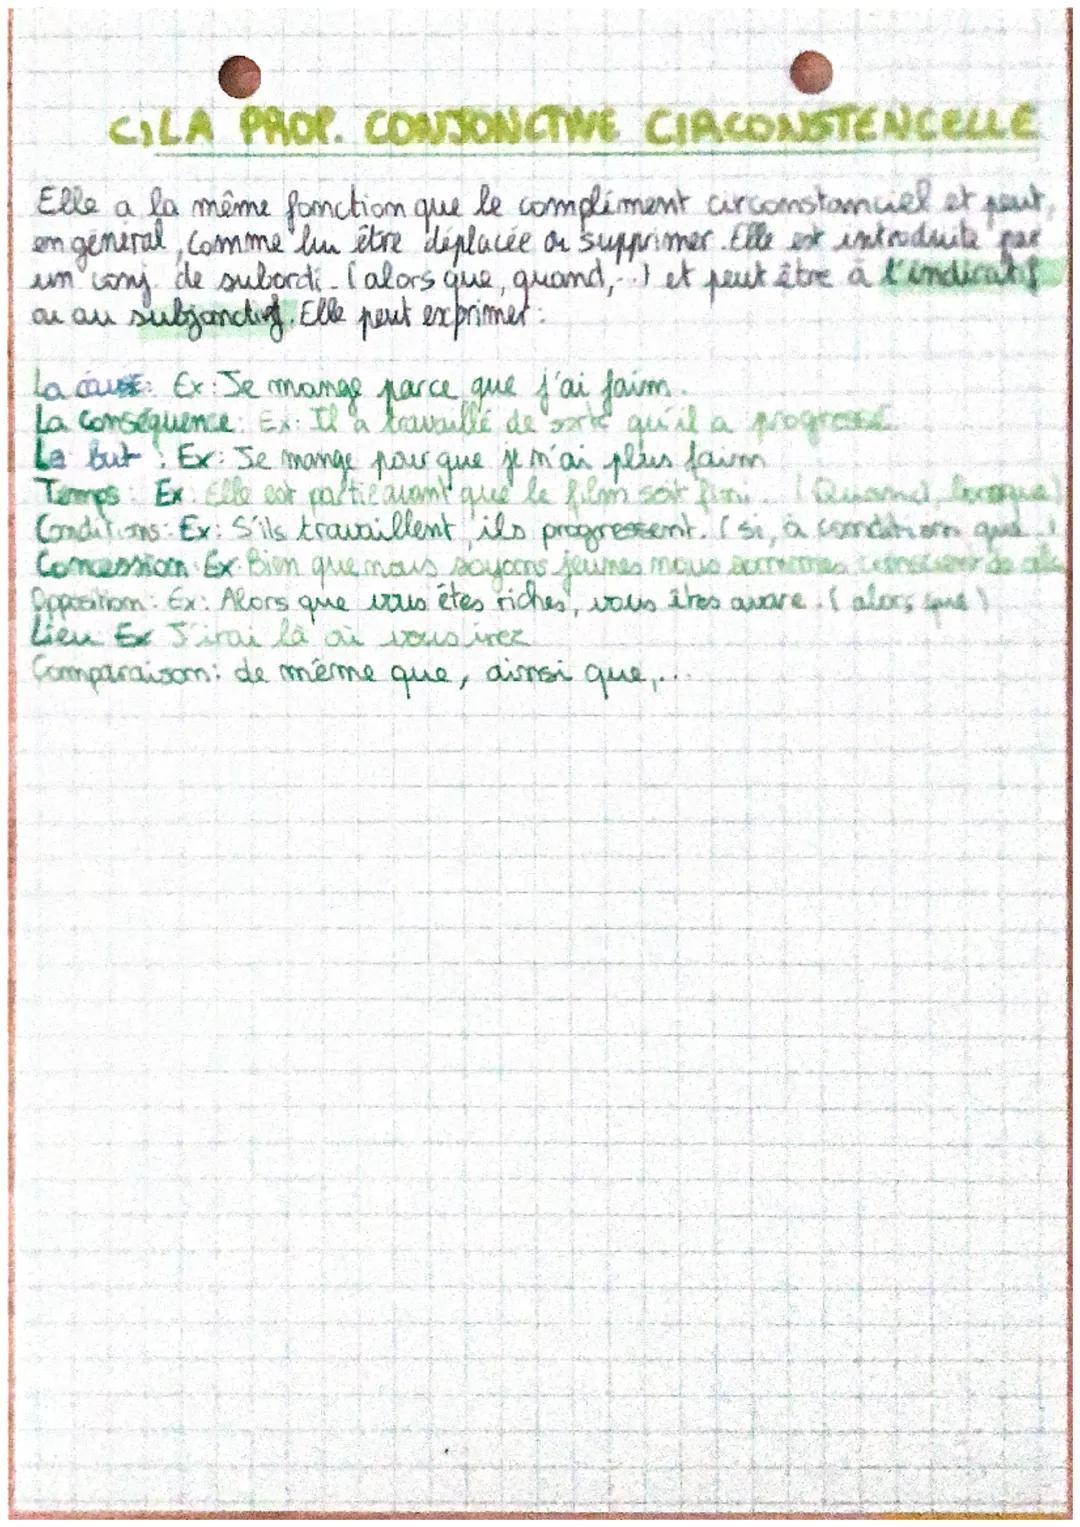 C) LA PROP. CONJONCTIVE CIRCONSTENCELLE
Elle a la même fonction que le compliment circonstanciel et peut,
en général, comme lui être déplacée ou supprimer. Elle est introduite par
un conj. de subordi. (alors que, quand,...) et peut être à l'indicatif
ou au subjonctif. Elle peut exprimer :
La cause : Ex : Je mange parce que j'ai faim.
La conséquence : Ex : Il a travaillé de sorte qu'il a progressé.
Le But : Ex : Je mange pour que je n'ai plus faim
Temps : Ex : Elle est partie avant que le film soit fini. (Quand, lorsque)
Conditions : Ex : S'ils travaillent, ils progressent. (si, à condition que...)
Concession : Ex : Bien que nous soyons jeunes nous sommes conscient de cela
Opposition : Ex : Alors que vous êtes riches, vous êtes avare. (alors que)
Lieu : Ex J'irai là où vous irez
Comparaison : de même que, ainsi que,...